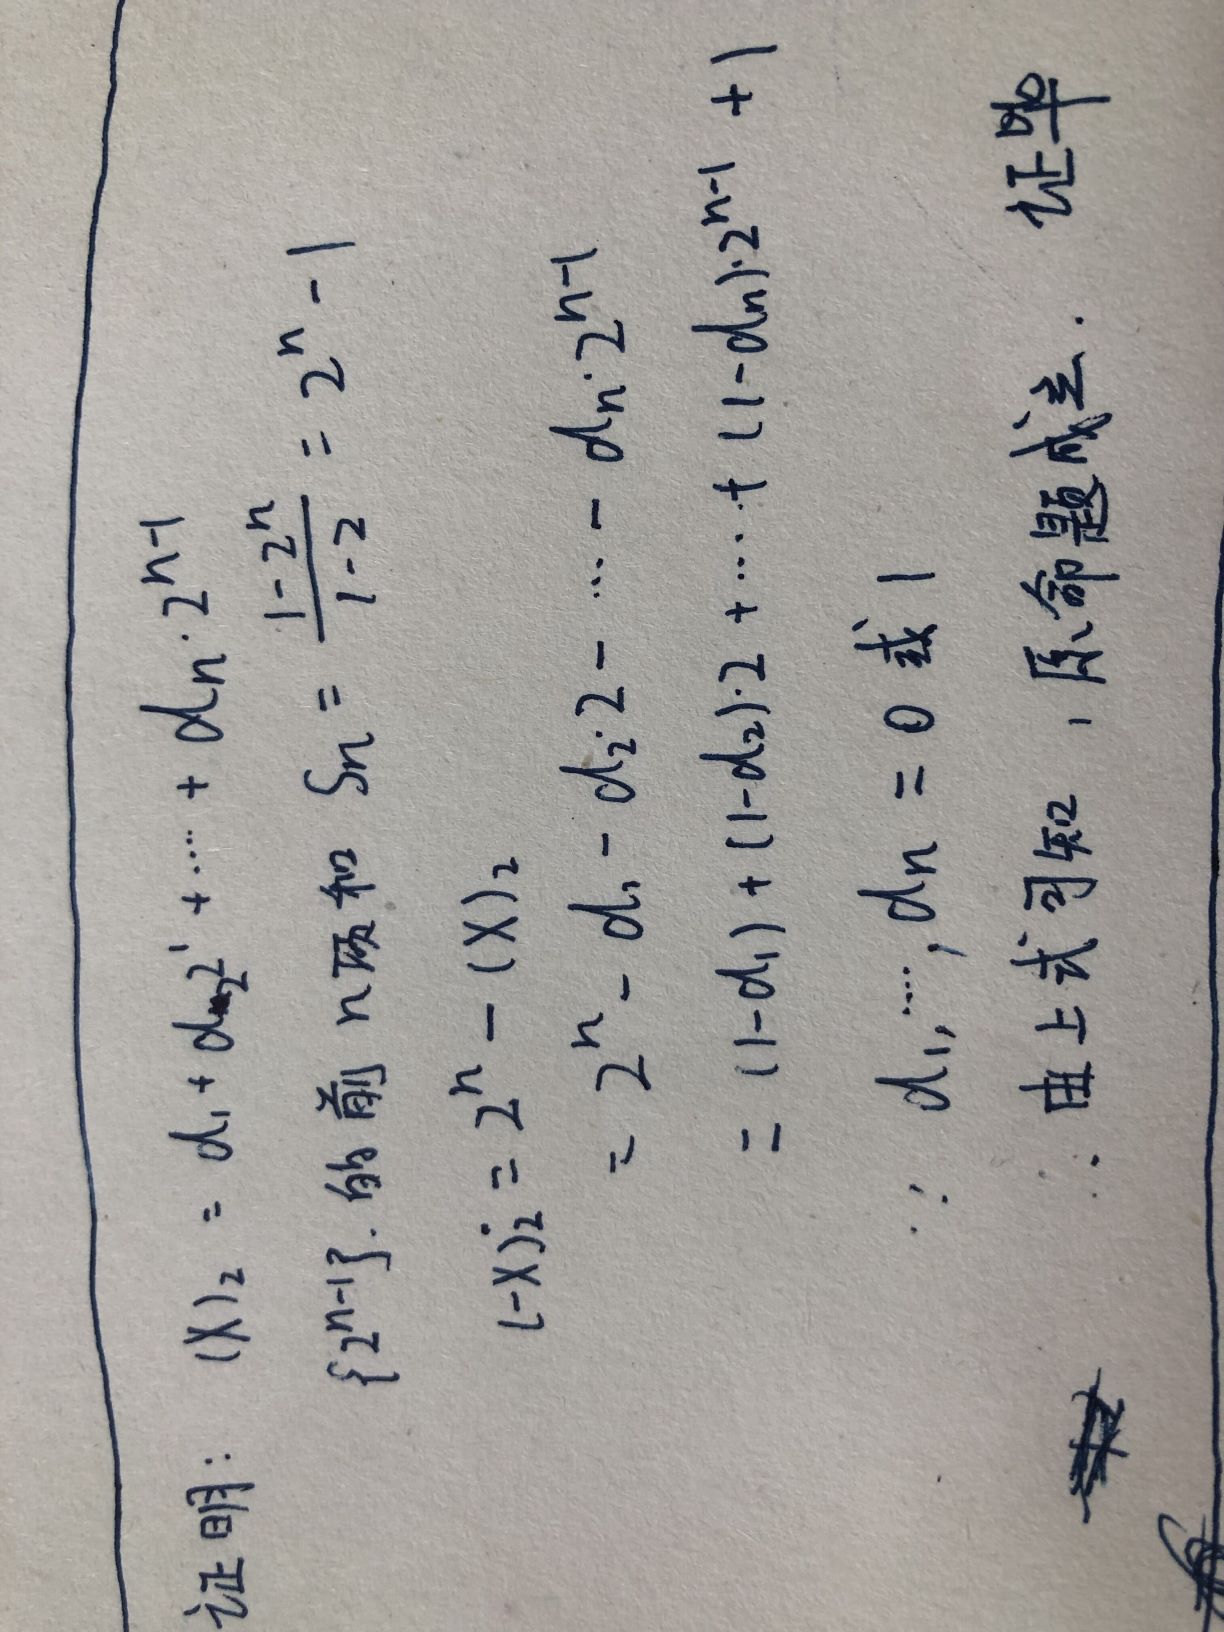 证明: (X)₂ = d₁ + d₂2¹ + ⋯ + dₙ·2ⁿ⁻¹
{2ⁿ⁻¹}. 的前 n项和 Sₙ = (1-2ⁿ)/(1-2) = 2ⁿ - 1
(-X)₂ = 2ⁿ - (X)₂
= 2ⁿ - d₁ - d₂·2 - ⋯ - dₙ·2ⁿ⁻¹
= (1-d₁) + (1-d₂)·2 + ⋯ + (1-dₙ)·2ⁿ⁻¹ + 1
∵ d₁,⋯,dₙ = 0 或 1
∴ 由上式可知, 原命题成立. 证毕